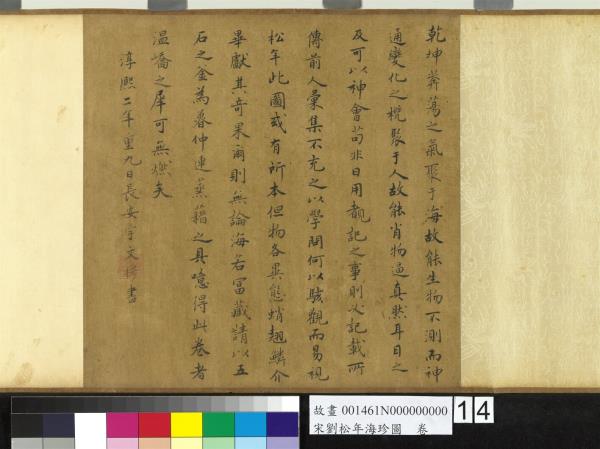 乾坤莽蕩之氣聚于海故能生物不測而神
通變化之機聚于人故能肖物逼真然耳目之
及可以神會苟非日用覯記之事則必記載所
傳前人彙集不充之以學問何以駭觀而易視
松年此圖或有所本但物各異態蛸翅鱗介
畢獻其奇果爾則無論海若冨藏請以五
石之釜為魯仲連蒸藉之具噫得此卷者
温嶠之犀可無燃矣
淳熙二年重九日長安宇文 書
故畫 001461N000000000
宋劉松年海珍圖 卷
14